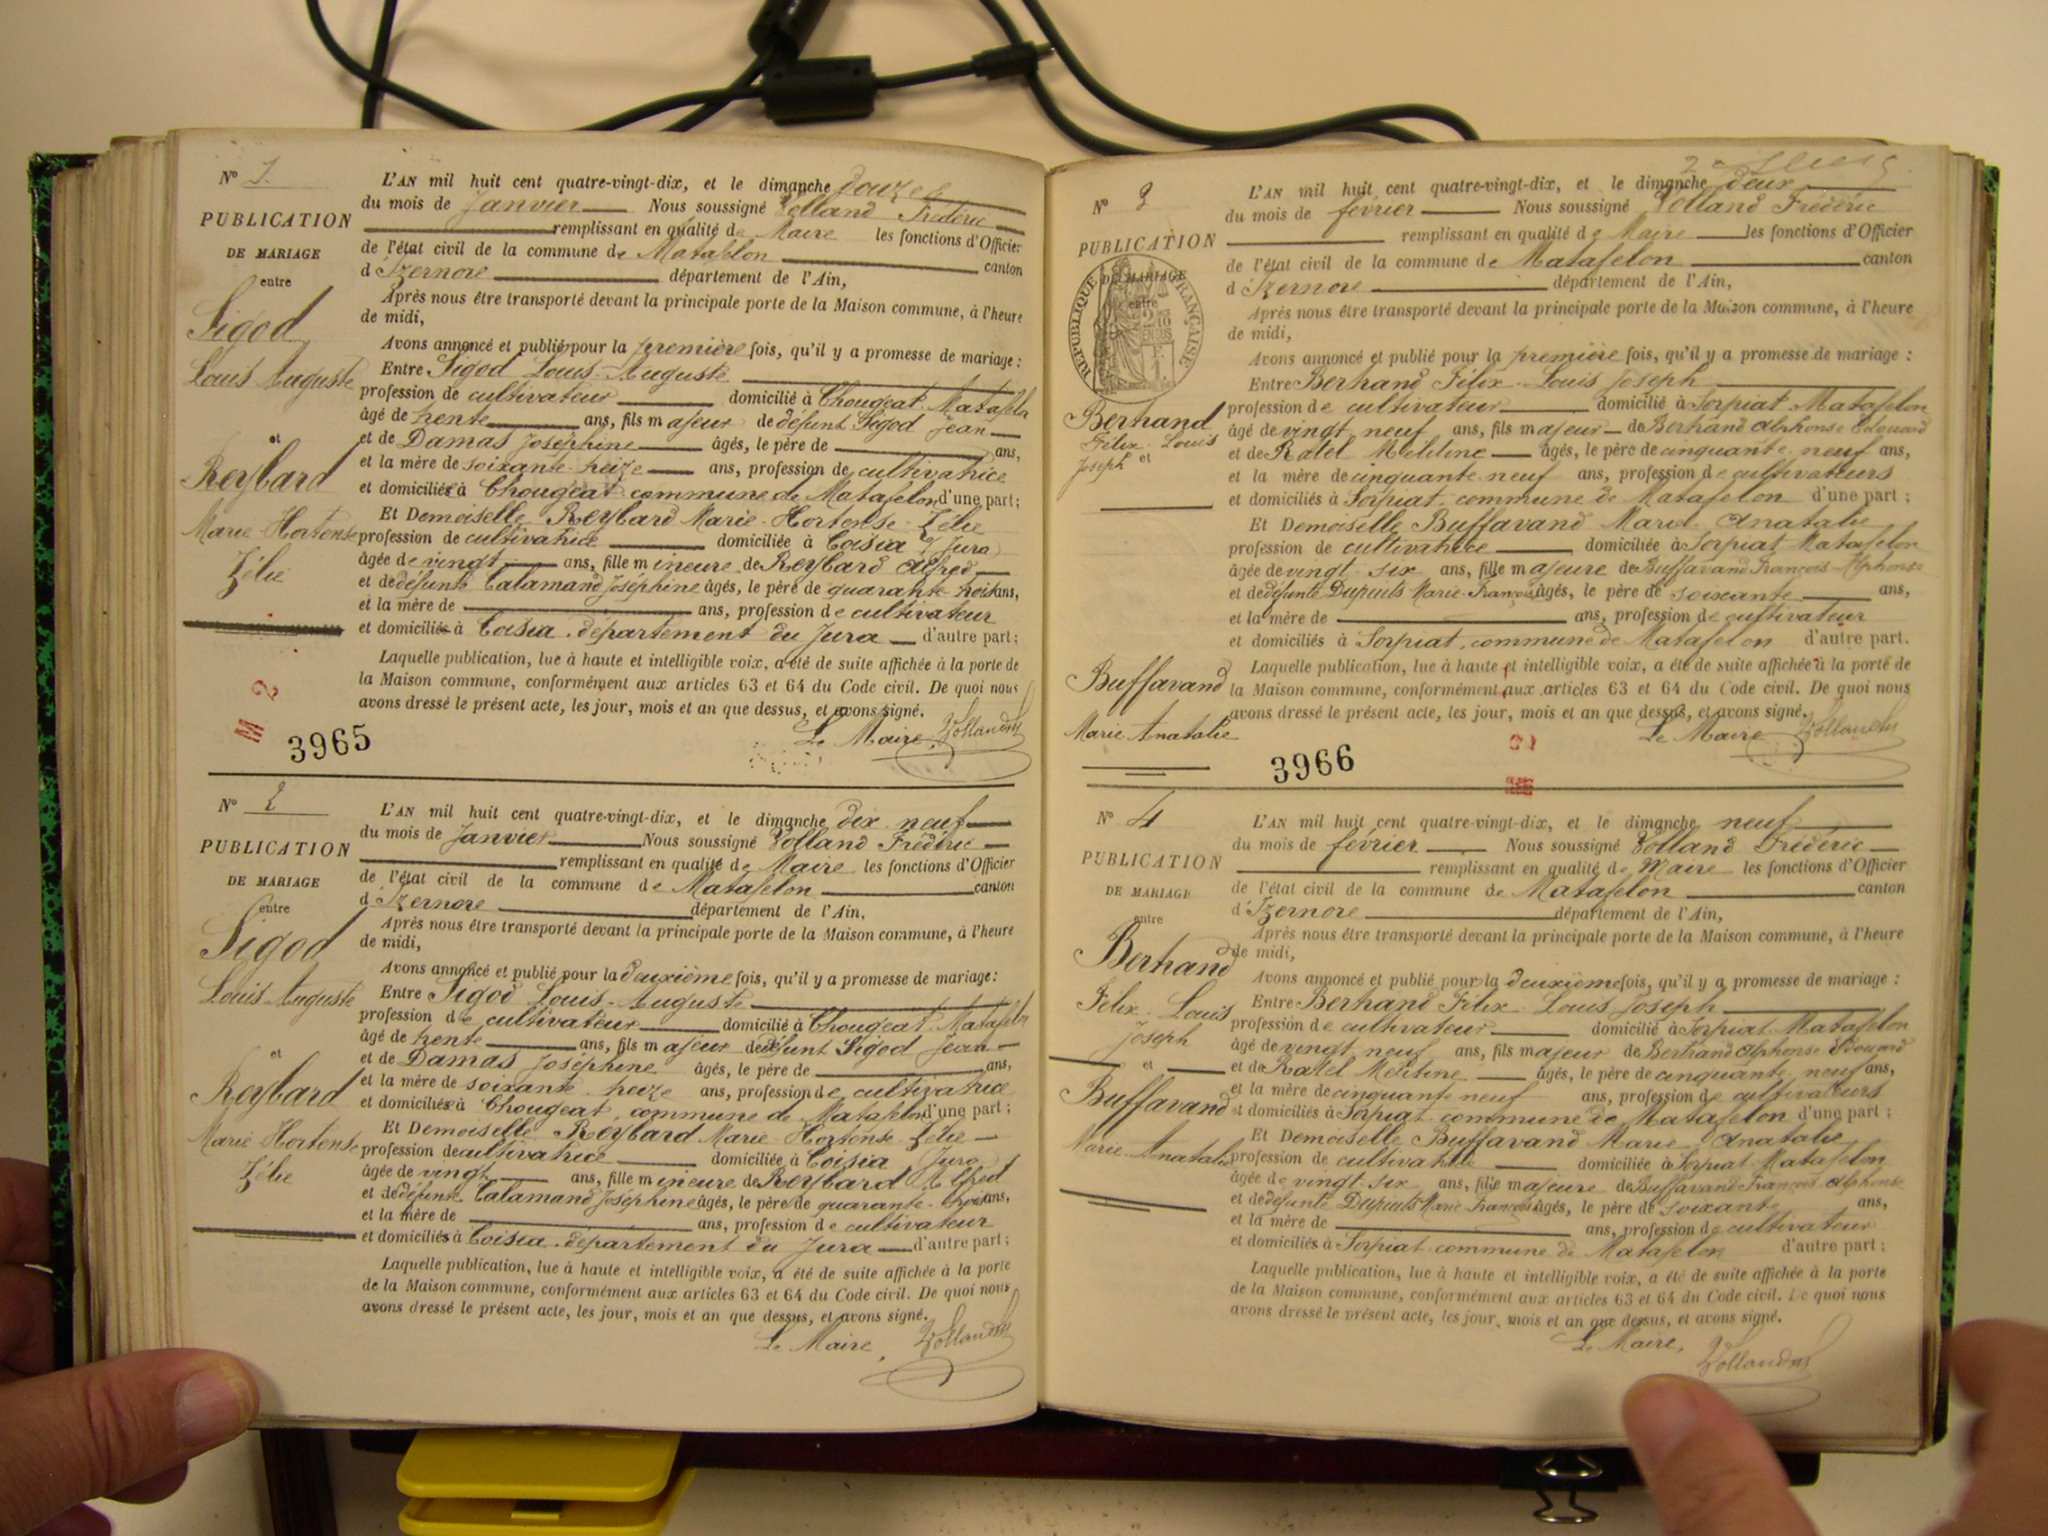 Nº 1.
PUBLICATION
DE MARIAGE
entre
Sigod
Louis Auguste
et
Reybard
Marie Hortense
Zélie
L'AN mil huit cent quatre-vingt-dix, et le dimanche douze
du mois de Janvier Nous soussigné Volland Frédéric
remplissant en qualité de Maire les fonctions d'Officier
de l'état civil de la commune de Matafelon canton
d'Izernore département de l'Ain,
Après nous être transporté devant la principale porte de la Maison commune, à l'heure
de midi,
Avons annoncé et publié pour la première fois, qu'il y a promesse de mariage :
Entre Sigod Louis-Auguste
profession de cultivateur domicilié à Chougeat Matafelon
âgé de trente ans, fils majeur de défunt Sigod Jean
et de Damas Joséphine âgés, le père de ans,
et la mère de soixante-treize ans, profession de cultivatrice
et domiciliés à Chougeat commune de Matafelon d'une part ;
Et Demoiselle Reybard Marie-Hortense-Zélie
profession de cultivatrice domiciliée à Coisia (Jura)
âgée de vingt ans, fille mineure de Reybard Alfred
et de défunte Calamand Joséphine âgés, le père de quarante-trois ans,
et la mère de ans, profession de cultivateur
et domiciliés à Coisia, département du Jura d'autre part ;
Laquelle publication, lue à haute et intelligible voix, a été de suite affichée à la porte de
la Maison commune, conformément aux articles 63 et 64 du Code civil. De quoi nous
avons dressé le présent acte, les jour, mois et an que dessus, et avons signé.
Le Maire, Volland
M 2
3965
Nº 2
PUBLICATION
DE MARIAGE
entre
Sigod
Louis Auguste
et
Reybard
Marie Hortense
Zélie
L'AN mil huit cent quatre-vingt-dix, et le dimanche dix neuf
du mois de Janvier Nous soussigné Volland Frédéric
remplissant en qualité de Maire les fonctions d'Officier
de l'état civil de la commune de Matafelon canton
d'Izernore département de l'Ain,
Après nous être transporté devant la principale porte de la Maison commune, à l'heure
de midi,
Avons annoncé et publié pour la deuxième fois, qu'il y a promesse de mariage :
Entre Sigod Louis-Auguste
profession de cultivateur domicilié à Chougeat Matafelon
âgé de trente ans, fils majeur de défunt Sigod Jean
et de Damas Joséphine âgés, le père de ans,
et la mère de soixante treize ans, profession de cultivatrice
et domiciliés à Chougeat, commune de Matafelon d'une part ;
Et Demoiselle Reybard Marie-Hortense-Zélie
profession de cultivatrice domiciliée à Coisia Jura
âgée de vingt ans, fille mineure de Reybard Alfred
et de défunte Calamand Joséphine âgés, le père de quarante-trois ans,
et la mère de ans, profession de cultivateur
et domiciliés à Coisia, département du Jura d'autre part ;
Laquelle publication, lue à haute et intelligible voix, a été de suite affichée à la porte
de la Maison commune, conformément aux articles 63 et 64 du Code civil. De quoi nous
avons dressé le présent acte, les jour, mois et an que dessus, et avons signé.
Le Maire, Volland
Nº 3
PUBLICATION
DE MARIAGE
entre
RÉPUBLIQUE FRANÇAISE
Bertrand
Félix Louis
Joseph et
Buffavand
Marie Anatalie
L'AN mil huit cent quatre-vingt-dix, et le dimanche deux
du mois de février Nous soussigné Volland Frédéric
remplissant en qualité de Maire les fonctions d'Officier
de l'état civil de la commune de Matafelon canton
d'Izernore département de l'Ain,
Après nous être transporté devant la principale porte de la Maison commune, à l'heure
de midi,
Avons annoncé et publié pour la première fois, qu'il y a promesse de mariage :
Entre Bertrand Félix-Louis Joseph
profession de cultivateur domicilié à Sorpiat Matafelon
âgé de vingt neuf ans, fils majeur de Bertrand Alphonse Edouard
et de Ratel Mélitine âgés, le père de cinquante neuf ans,
et la mère de cinquante neuf ans, profession de cultivateurs
et domiciliés à Sorpiat, commune de Matafelon d'une part ;
Et Demoiselle Buffavand Marie Anatalie
profession de cultivatrice domiciliée à Sorpiat Matafelon
âgée de vingt six ans, fille majeure de Buffavand François-Alphonse
et de défunte Dupuits Marie-Françoise âgés, le père de soixante ans,
et la mère de ans, profession de cultivateur
et domiciliés à Sorpiat, commune de Matafelon d'autre part.
Laquelle publication, lue à haute et intelligible voix, a été de suite affichée à la porte de
la Maison commune, conformément aux articles 63 et 64 du Code civil. De quoi nous
avons dressé le présent acte, les jour, mois et an que dessus, et avons signé.
Le Maire Volland
3966
Nº 4
PUBLICATION
DE MARIAGE
entre
Bertrand
Félix-Louis
Joseph
et
Buffavand
Marie Anatalie
L'AN mil huit cent quatre-vingt-dix, et le dimanche neuf
du mois de février Nous soussigné Volland Frédéric
remplissant en qualité de Maire les fonctions d'Officier
de l'état civil de la commune de Matafelon canton
d'Izernore département de l'Ain,
Après nous être transporté devant la principale porte de la Maison commune, à l'heure
de midi,
Avons annoncé et publié pour la deuxième fois, qu'il y a promesse de mariage :
Entre Bertrand Félix-Louis Joseph
profession de cultivateur domicilié à Sorpiat Matafelon
âgé de vingt neuf ans, fils majeur de Bertrand Alphonse Edouard
et de Ratel Mélitine âgés, le père de cinquante neuf ans,
et la mère de cinquante neuf ans, profession de cultivateurs
et domiciliés à Sorpiat commune de Matafelon d'une part ;
Et Demoiselle Buffavand Marie Anatalie
profession de cultivatrice domiciliée à Sorpiat Matafelon
âgée de vingt six ans, fille majeure de Buffavand François Alphonse
et de défunte Dupuits Marie Françoise âgés, le père de soixante ans,
et la mère de ans, profession de cultivateur
et domiciliés à Sorpiat commune de Matafelon d'autre part ;
Laquelle publication, lue à haute et intelligible voix, a été de suite affichée à la porte
de la Maison commune, conformément aux articles 63 et 64 du Code civil. De quoi nous
avons dressé le présent acte, les jour, mois et an que dessus, et avons signé.
Le Maire, Volland